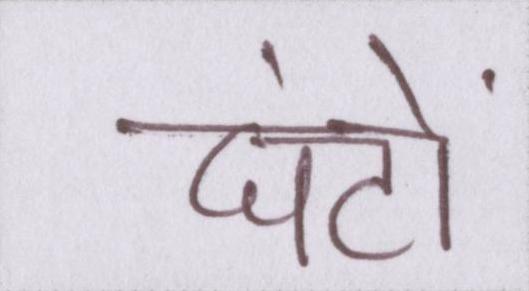 घंटों